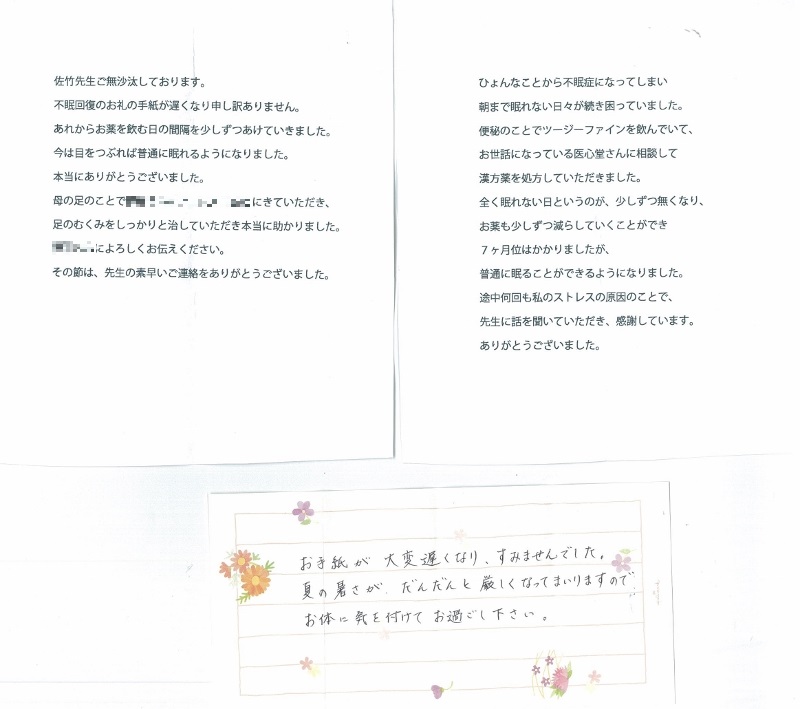 佐竹先生ご無沙汰しております。
不眠回復のお礼の手紙が遅くなり申し訳ありません。
あれからお薬を飲む日の間隔を少しずつあけていきました。
今は目をつぶれば普通に眠れるようになりました。
本当にありがとうございました。
母の足のことで にきていただき、
足のむくみをしっかりと治していただき本当に助かりました。
によろしくお伝えください。
その節は、先生の素早いご連絡をありがとうございました。
ひょんなことから不眠症になってしまい
朝まで眠れない日々が続き困っていました。
便秘のことでツージーファインを飲んでいて、
お世話になっている医心堂さんに相談して
漢方薬を処方していただきました。
全く眠れない日というのが、少しずつ無くなり、
お薬も少しずつ減らしていくことができ
７ヶ月位はかかりましたが、
普通に眠ることができるようになりました。
途中何回も私のストレスの原因のことで、
先生に話を聞いていただき、感謝しています。
ありがとうございました。
お手紙が 大変遅くなり、すみませんでした。
夏の暑さが だんだんと 厳しくなってまいりますので
お体に気を付けて お過ごし下さい。